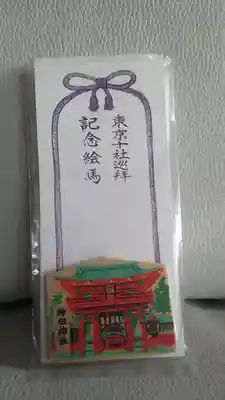 東京十社巡拝
記念絵馬
神田神社